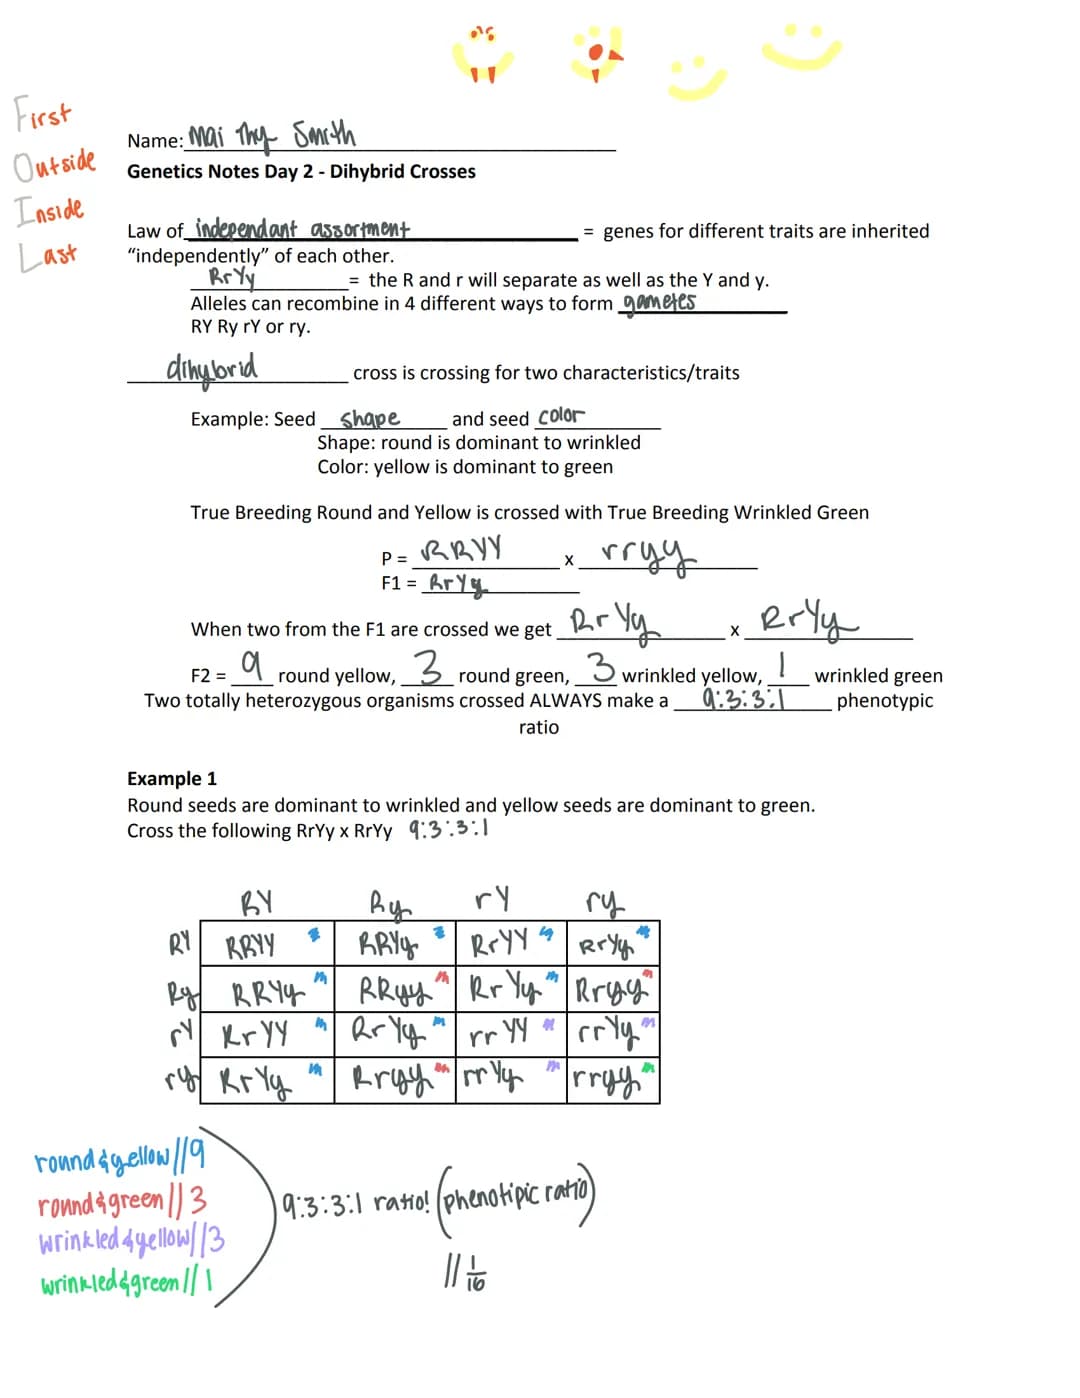 First
Outside
Inside
Last
Name: Mai Thy Smith
Genetics Notes Day 2 - Dihybrid Crosses
Law of independant assortment = genes for different traits are inherited
“independently” of each other.
RrYy = the R and r will separate as well as the Y and y.
Alleles can recombine in 4 different ways to form gametes
RY Ry rY or ry.
dihybrid cross is crossing for two characteristics/traits
Example: Seed shape and seed color
Shape: round is dominant to wrinkled
Color: yellow is dominant to green
True Breeding Round and Yellow is crossed with True Breeding Wrinkled Green
P = RRYY x rryy
F1 = RrYy
When two from the F1 are crossed we get RrYy x RrYy
F2 = 9 round yellow, 3 round green, 3 wrinkled yellow, 1 wrinkled green
Two totally heterozygous organisms crossed ALWAYS make a 9:3:3:1 phenotypic
ratio
Example 1
Round seeds are dominant to wrinkled and yellow seeds are dominant to green.
Cross the following RrYy x RrYy 9:3:3:1
RY Ry rY ry
RY RRYY RRYy RrYY RrYy
Ry RRYy RRyy RrYy Rryy
rY RrYY RrYy rrYY rrYy
ry RrYy Rryy rrYy rryy
round & yellow // 9
round & green // 3
wrinkled & yellow // 3
wrinkled & green // 1
9:3:3:1 ratio! (phenotipic ratio)
// 1/16